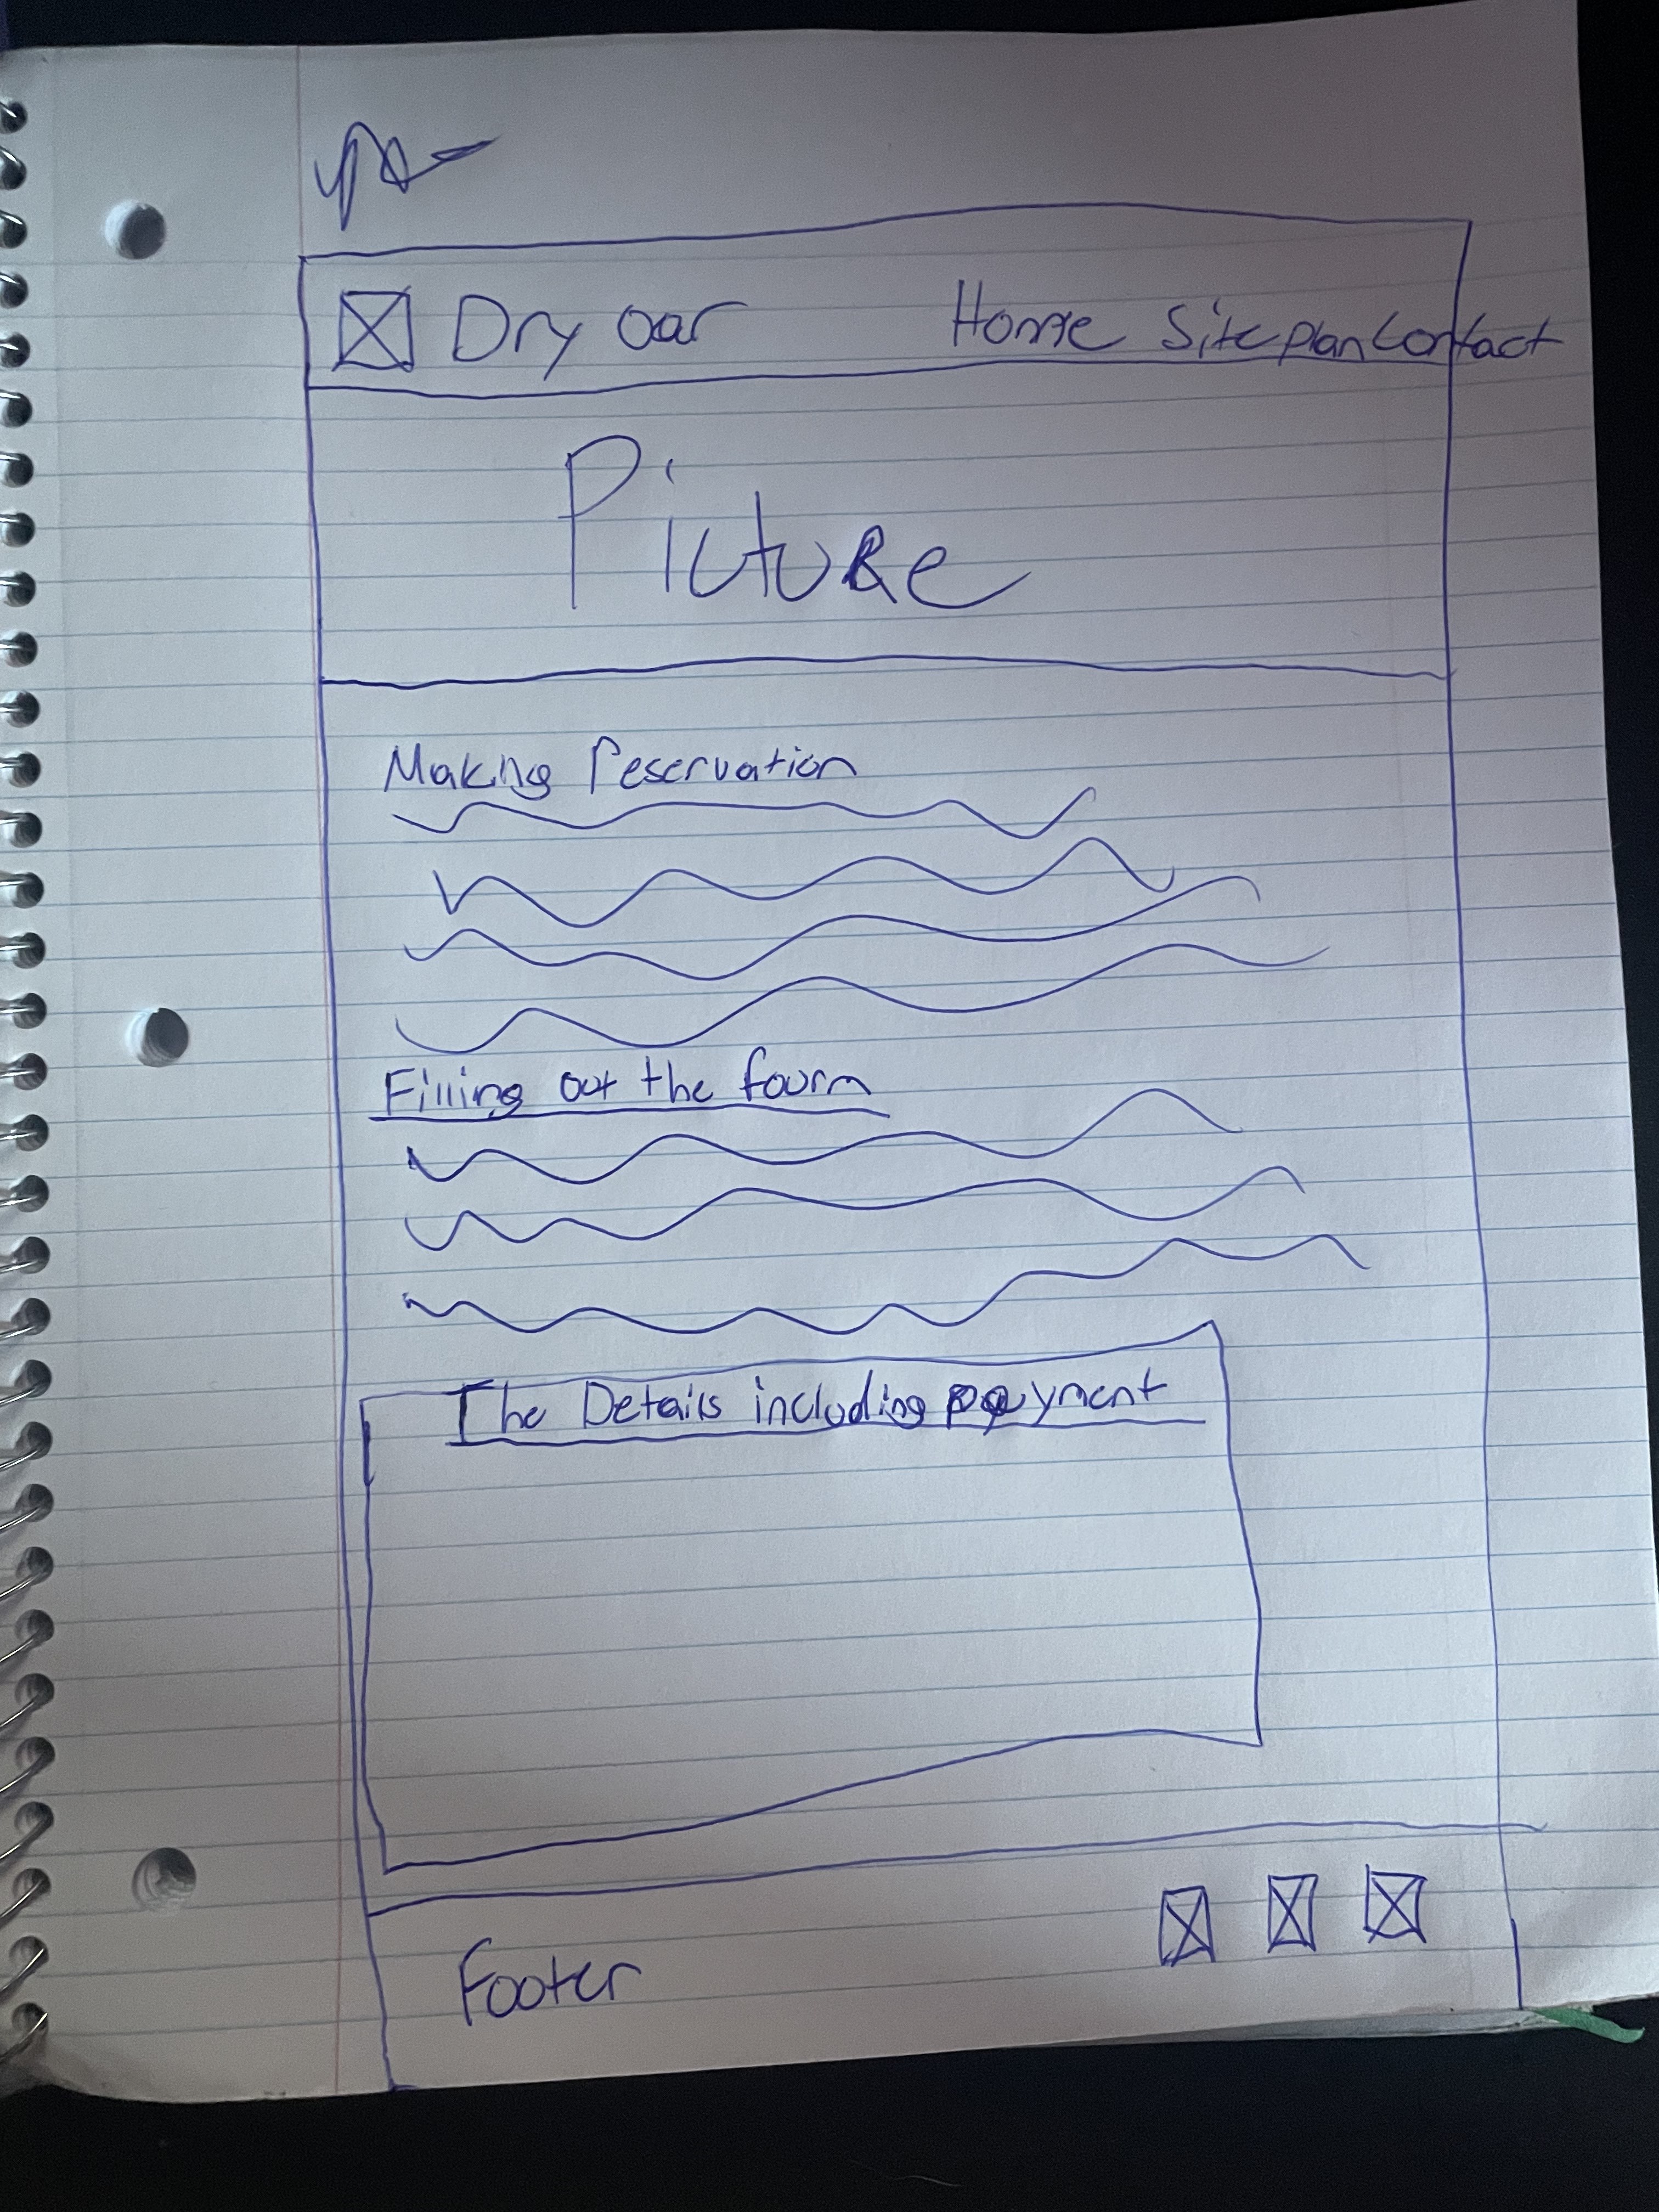 Dry oar Home Site plan Contact
Picture
Making reservation
Filling out the fourm
The Details including payment
Footer